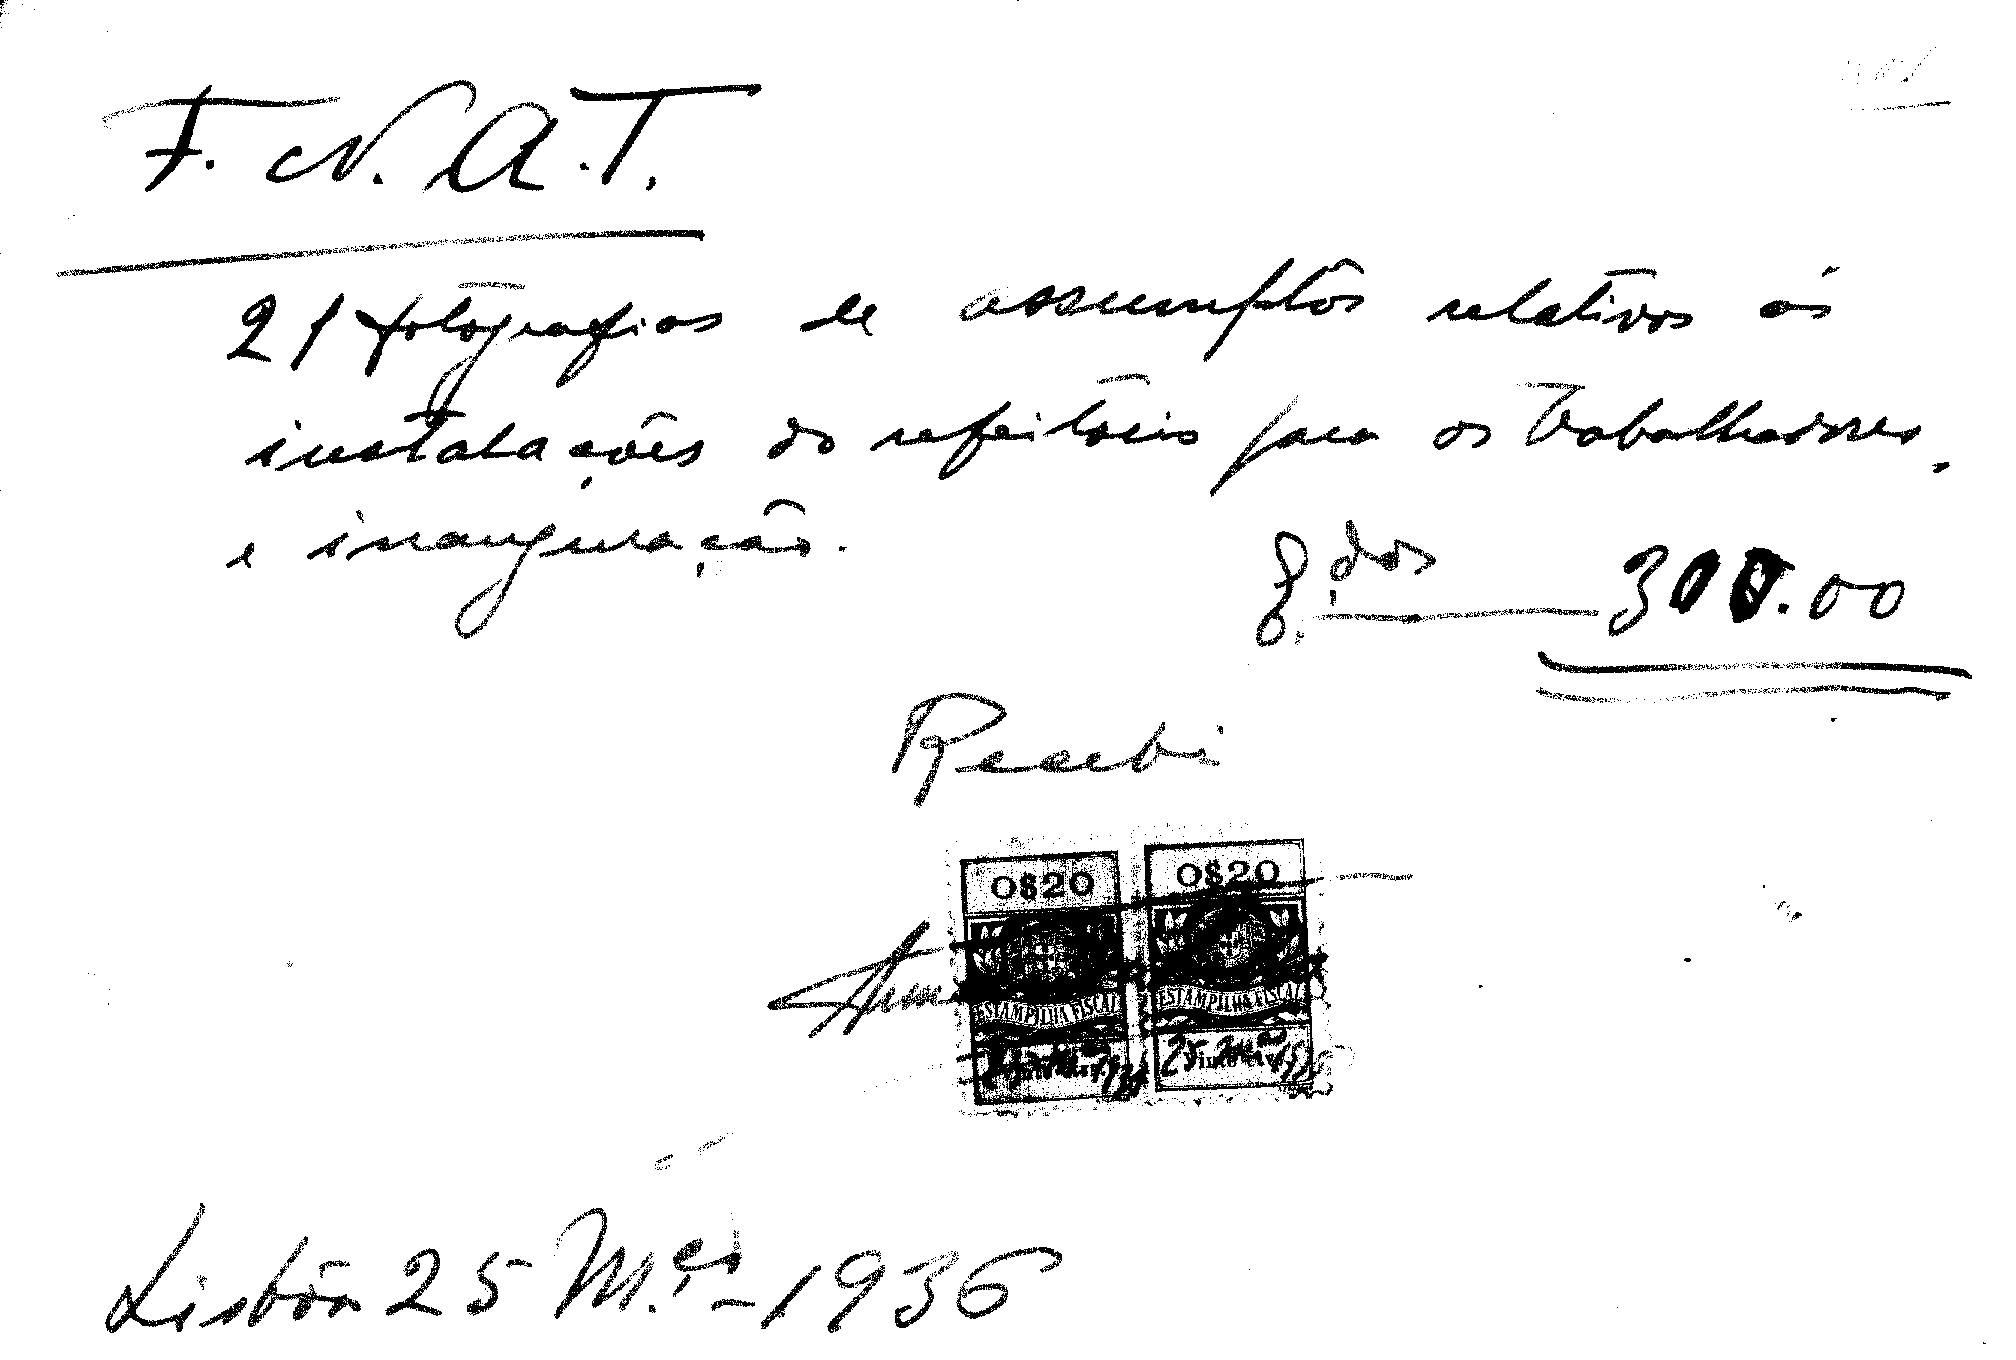 F. N. A. T.
21 fotografias de assumptos relativos ás
instalações do refeitório para os trabalhadores,
e inauguração.
E.dos 300.00
Recebi
0$20 0$20
ESTAMPILHA FISCAL ESTAMPILHA FISCAL
Lisbôa 25 M.ço - 1936